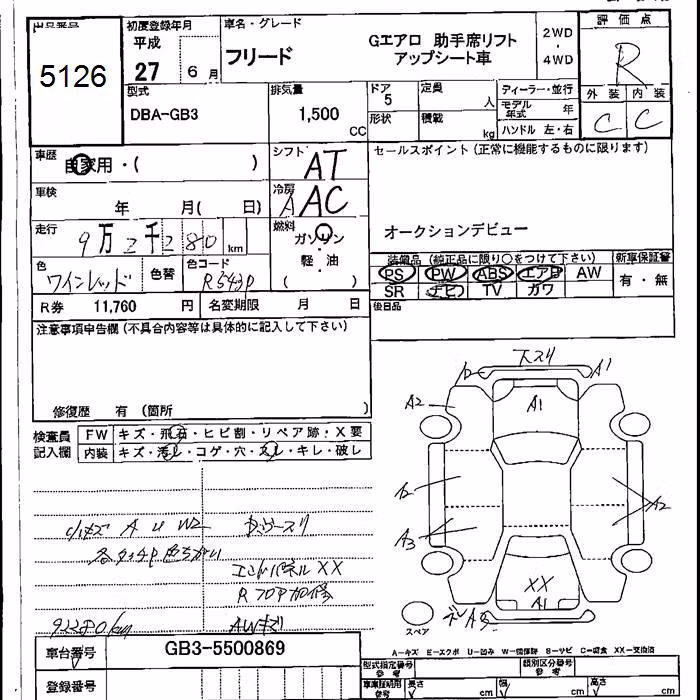 出品番号
5126
初度登録年月
平成
27 6 月
車名・グレード
フリード
Gエアロ 助手席リフト
アップシート車
2WD
・
4WD
評価点
R
外装 内装
C C
型式
DBA-GB3
排気量
1,500
CC
ドア
5
形状
定員
人
積載
kg
ディーラー・並行
モデル年式 年
ハンドル 左・右
車歴
自家用・( )
シフト
AT
セールスポイント (正常に機能するものに限ります)
オークションデビュー
車検
年 月( 日)
冷房
A AC
走行
9万2千280 km
燃料
ガソリン
・
軽・油
( )
色
ワインレッド
色替
色コード
R543P
装備品 (純正品に限り○をつけて下さい)
新車保証書
PS PW ABS エアB AW
有・無
SR ナビ TV カワ
R券 11,760 円
名変期限 月 日
後日品
注意事項申告欄 (不具合内容等は具体的に記入して下さい)
修復歴 有 (箇所 )
検査員
記入欄
FW キズ・飛石・ヒビ割・リペア跡・X要
内装 キズ・汚レ・コゲ・穴・スレ・キレ・破レ
A U W2
エンドパネル XX
92280km
AWキズ
下スリ
A1
A2
A1
A2
A3
XX
A1
スペア
A-キズ E-エクボ U-凹み W-補修跡 S-サビ C-腐食 XX-交換済
車台番号
GB3-5500869
登録番号
型式指定番号
類別区分番号
車庫証明用
参考
長さ cm
幅 cm
高さ cm